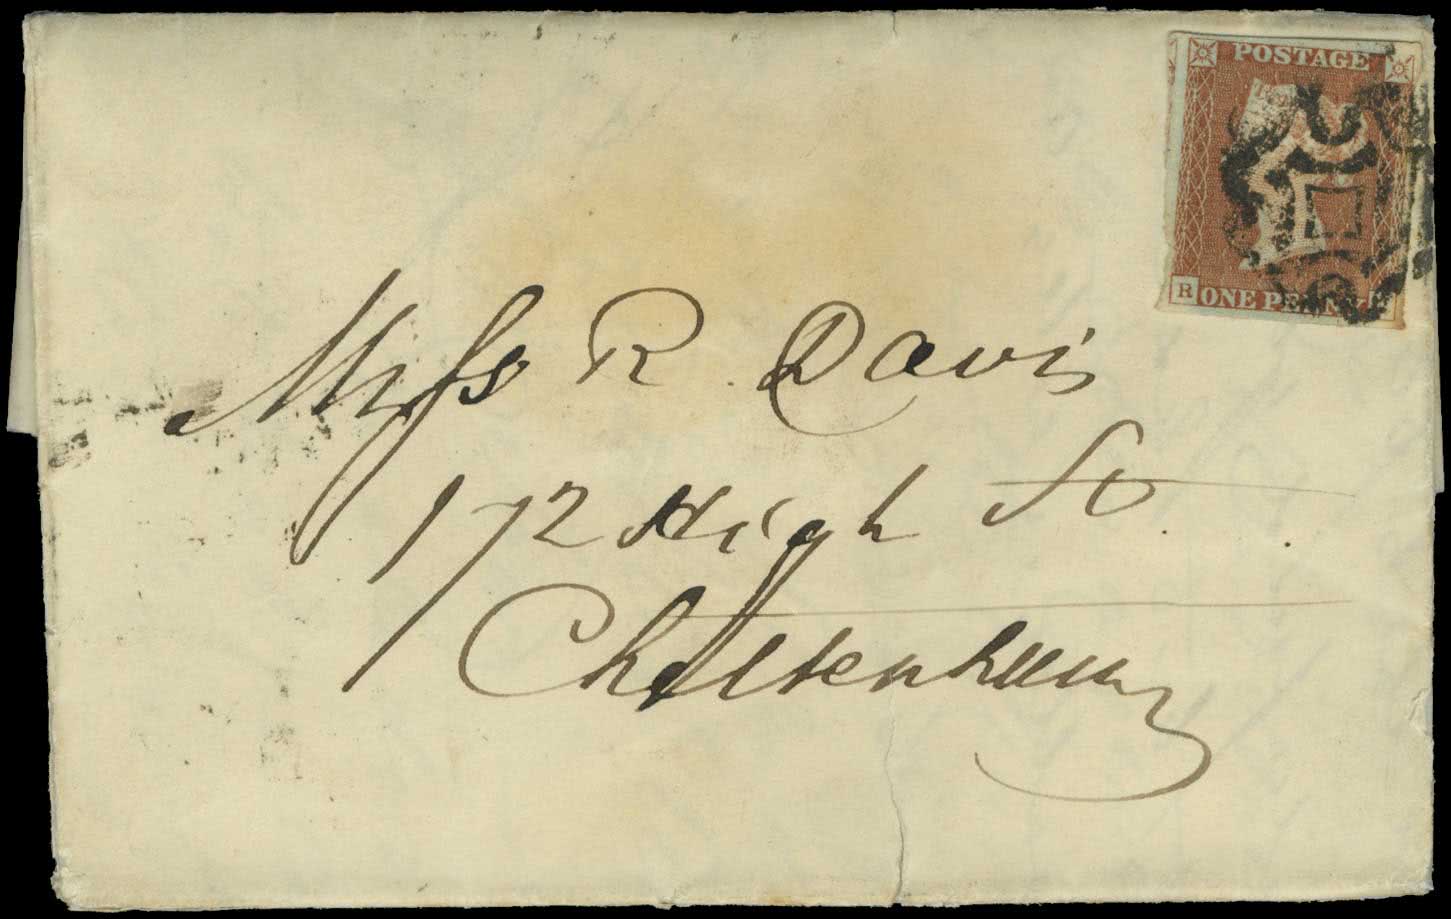 POSTAGE
R ONE PENNY
Miss R. Davis
172 High St.
Cheltenham